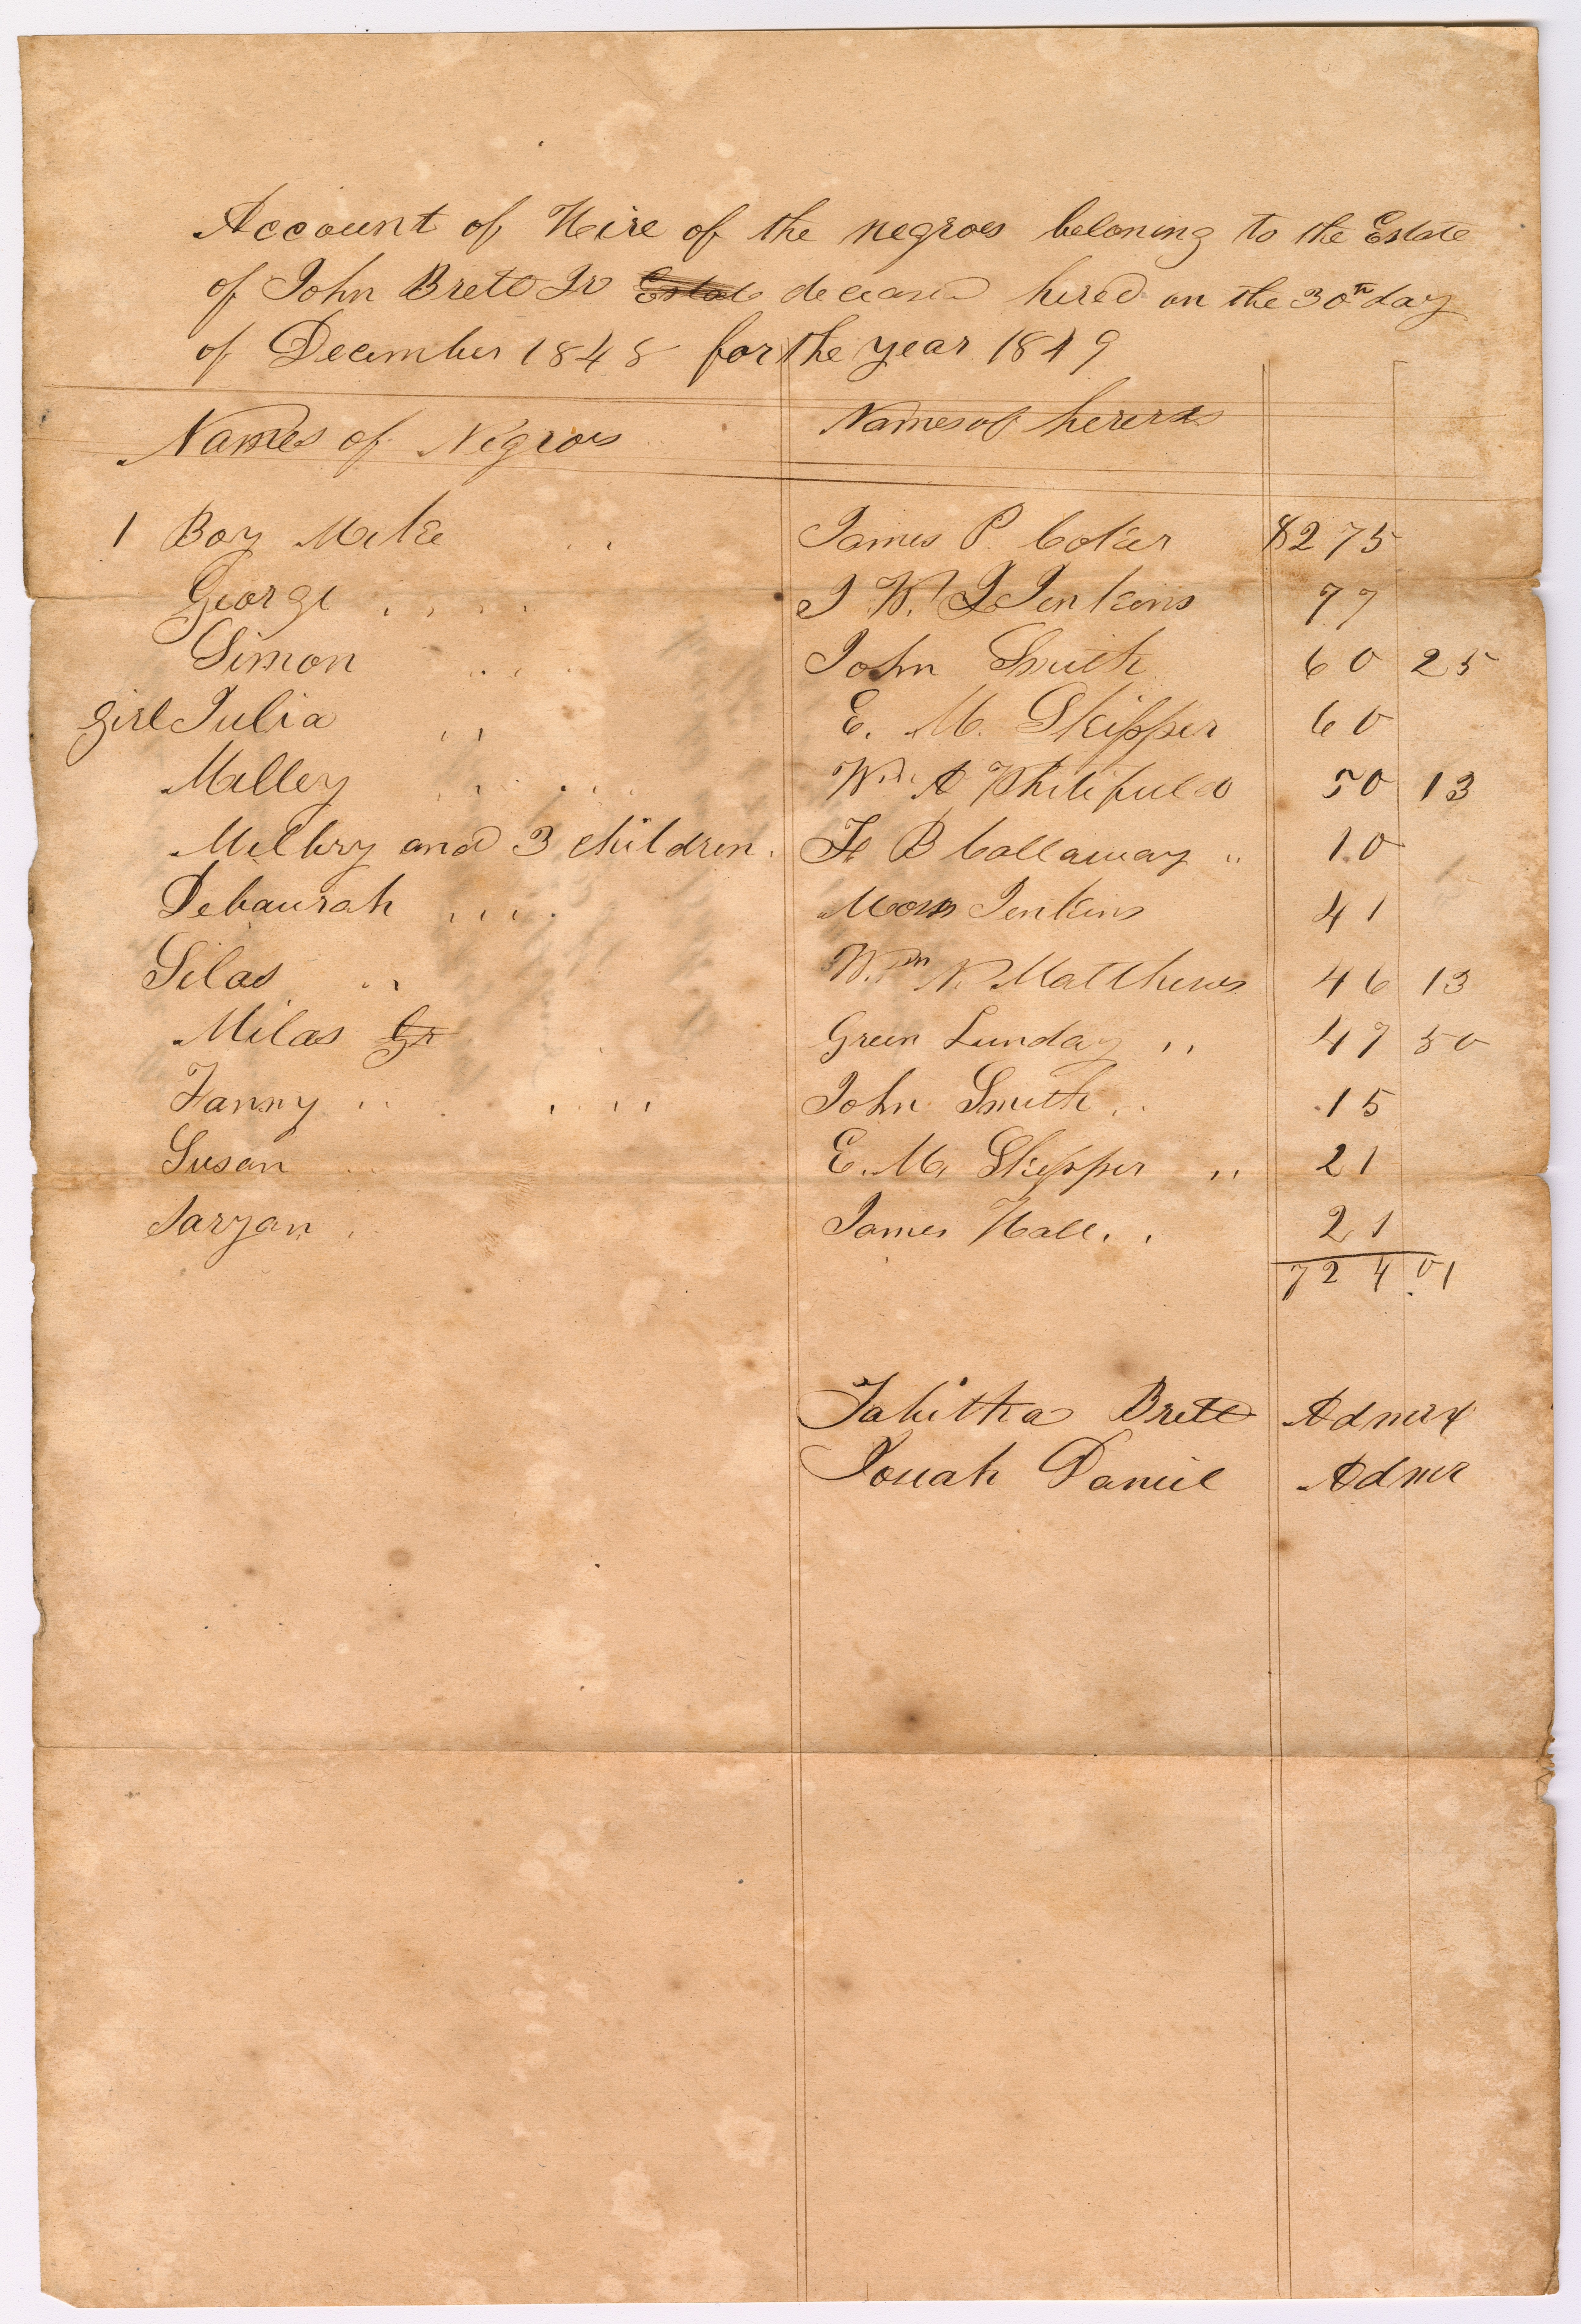 Account of Hire of the negroes beloning to the Estate
of John Brett Jr Estate deceased hired on the 30th day
of December 1848 for the year 1849
Names of Negroes Names of hirers
1 Boy Mike James P. Coker $275
George J W. Jenkins 77
Simon John Smith 60 25
Girl Julia E. M. Skipper 60
Milley Wm A Whitifield 50 13
Milbry and 3 children. F B Callaway " 10
Debaurah Jenkins 41
Silas Wm N. Matthews 46 13
Milas Gr Green Lunday " 47 50
Fanny John Smith 15
Susan E. M. Skipper " 21
Saryan James Hall 21
724.01
Tabitha Brett Admrx
Josiah Daniel Admr